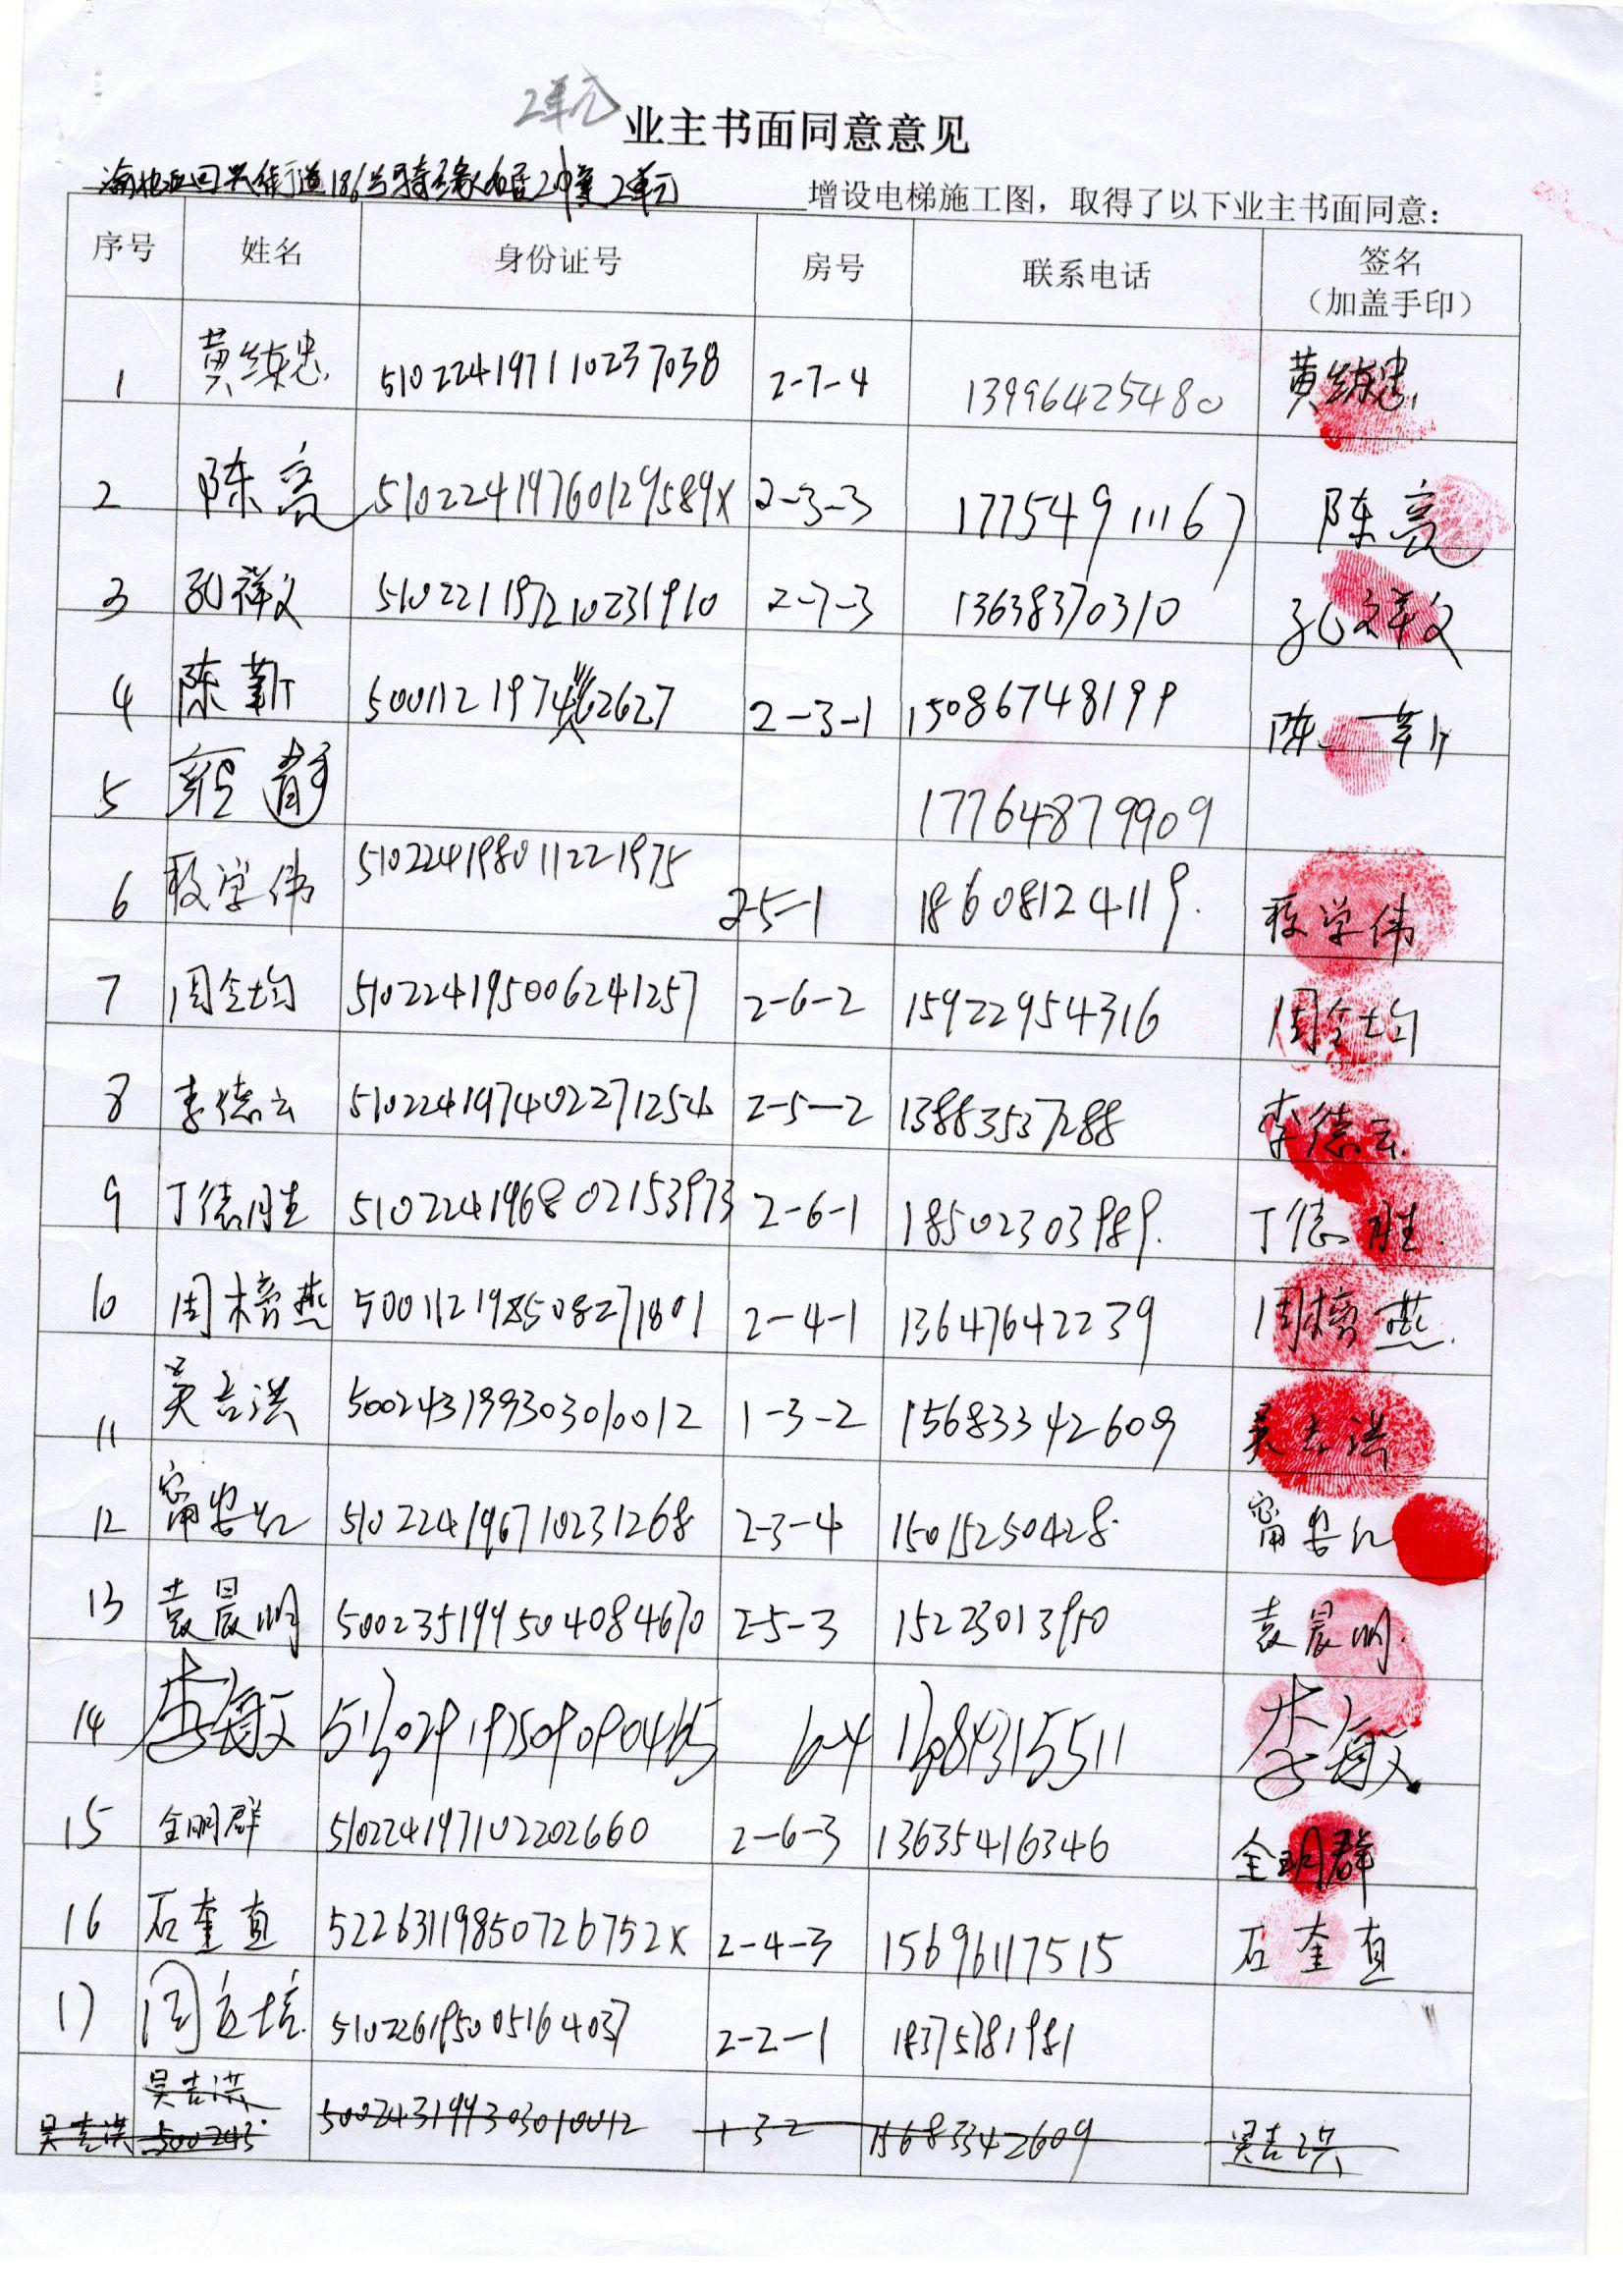 2单元
业主书面同意意见
2幢2单元 增设电梯施工图，取得了以下业主书面同意：
序号 姓名 身份证号 房号 联系电话 签名（加盖手印）
1 黄练忠 510224197110237038 2-7-4 13996425480 黄练忠
2 陈亮 51022419760129589X 2-3-3 17754911167 陈亮
3 孔祥义 510221197210231910 2-7-3 13638370310 孔祥义
4 陈勤 2-3-1 15086748199 陈勤
5 静 17764879909
6 学伟 510224198011221975 2-5-1 18608124119 学伟
7 周全均 510224195006241257 2-6-2 15922954316 周全均
8 李德云 510224197402271254 2-5-2 13883537288 李德云
9 丁德胜 510224196802153973 2-6-1 18502303989 丁德胜
10 周 燕 500112198508271801 2-4-1 13647642239 周 燕
11 吴吉洪 500243199303010012 1-3-2 15683342609 吴吉洪
12 甯 510224196710231268 2-3-4 15015250428 甯
13 袁晨明 500235199504084670 2-5-3 15223013950 袁晨明
14 李敏 6-4 李敏
15 全明群 510224197102202660 2-6-3 13635416346 全明群
16 石奎直 52263119850726752X 2-4-3 15696117515 石奎直
17 周 培 510226195005164037 2-2-1 18375781981
吴吉洪
吴吉洪 500243 500243199303010012 1-3-2 15683342609 吴吉洪